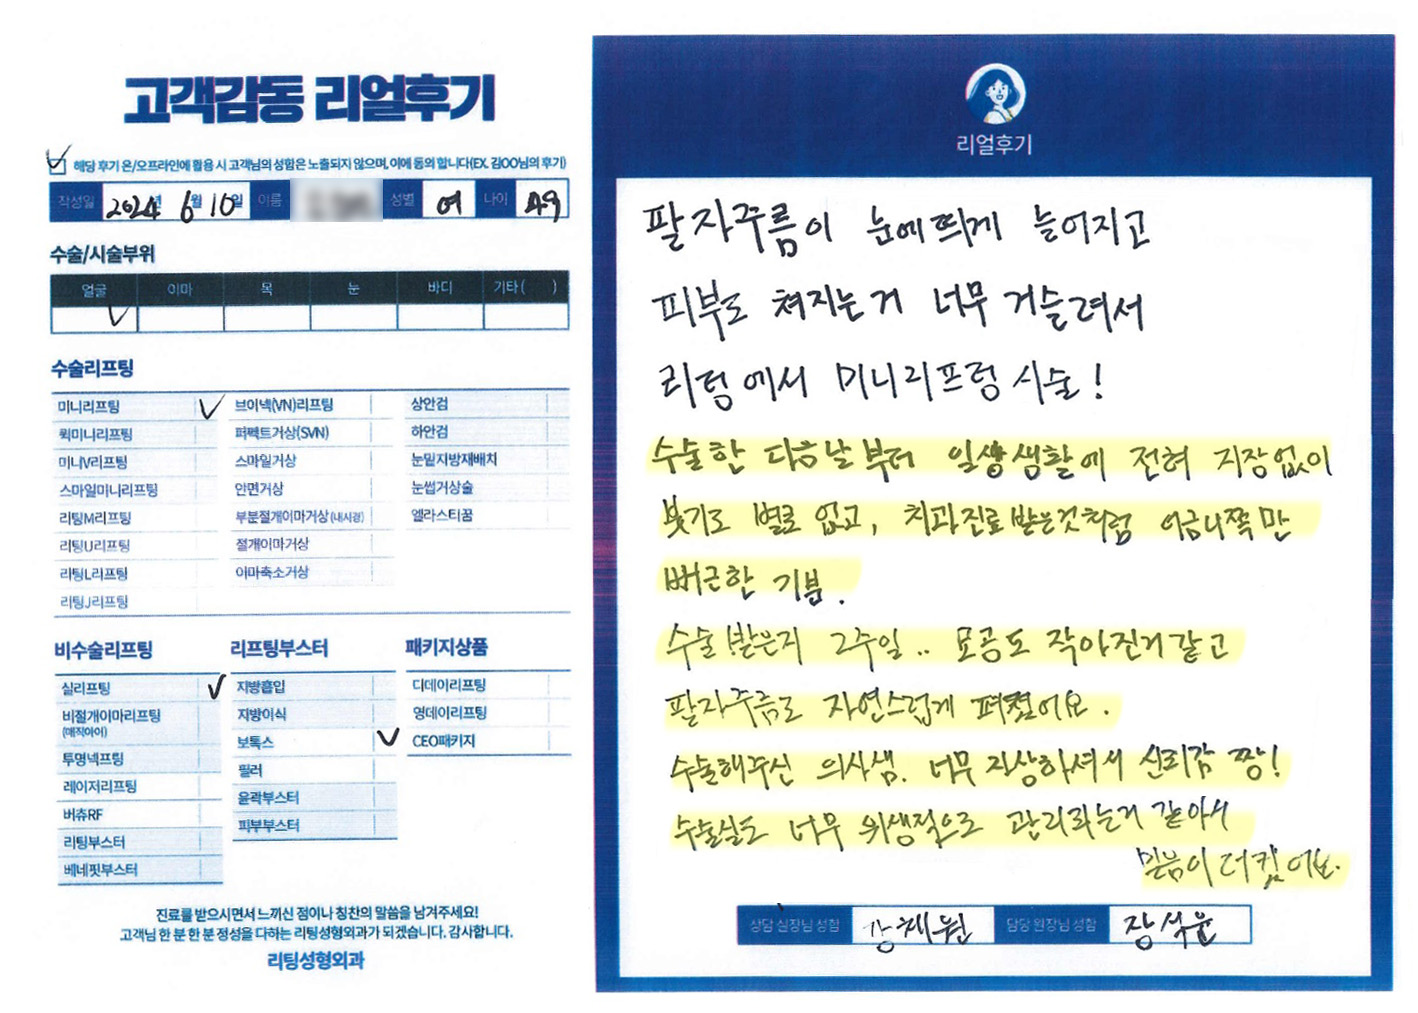 고객감동 리얼후기
해당 후기 온/오프라인에 활용 시 고객님의 성함은 노출되지 않으며, 이에 동의 합니다(EX. 김OO님의 후기)
작성일 2024년 6월 10일 이름 성별 여 나이 49
수술/시술부위
얼굴 이마 목 눈 바디 기타 ( )
수술리프팅
미니리프팅
퀵미니리프팅
미니V리프팅
스마일미니리프팅
리팅M리프팅
리팅U리프팅
리팅L리프팅
리팅J리프팅
브이넥(VN)리프팅
퍼펙트거상(SVN)
스마일거상
안면거상
부분절개이마거상 (내시경)
절개이마거상
이마축소거상
상안검
하안검
눈밑지방재배치
눈썹거상술
엘라스티꿈
비수술리프팅
실리프팅
비절개이마리프팅
(매직아이)
투명넥프팅
레이저리프팅
버츄RF
리팅부스터
베네핏부스터
리프팅부스터
지방흡입
지방이식
보톡스
필러
윤곽부스터
피부부스터
패키지상품
디데이리프팅
영데이리프팅
CEO패키지
진료를 받으시면서 느끼신 점이나 칭찬의 말씀을 남겨주세요!
고객님 한 분 한 분 정성을 다하는 리팅성형외과가 되겠습니다. 감사합니다.
리팅성형외과
리얼후기
팔자주름이 눈에띄게 늘어지고
피부도 쳐지는거 너무 거슬려서
리팅에서 미니리프팅 시술!
수술한 다음날부터 일상생활에 전혀 지장없이
붓기도 별로 없고, 치과진료받은것처럼 어금니쪽만
뻐근한 기분.
수술받은지 2주일.. 모공도 작아진거같고
팔자주름도 자연스럽게 펴졌어요.
수술해주신 의사샘. 너무 자상하셔서 신뢰감 짱!
수술실도 너무 위생적으로 관리하는거 같아서
믿음이 더 컸어요.
상담 실장님 성함 강채원 담당 원장님 성함 장석윤